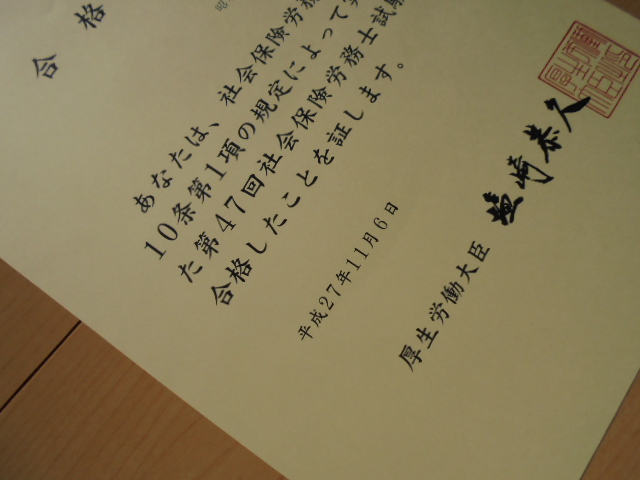 合格
昭
あなたは、社会保険労務
10条第1項の規定によって実
た第47回社会保険労務士試験
合格したことを証します。
平成27年11月6日
厚生労働大臣 塩崎恭久